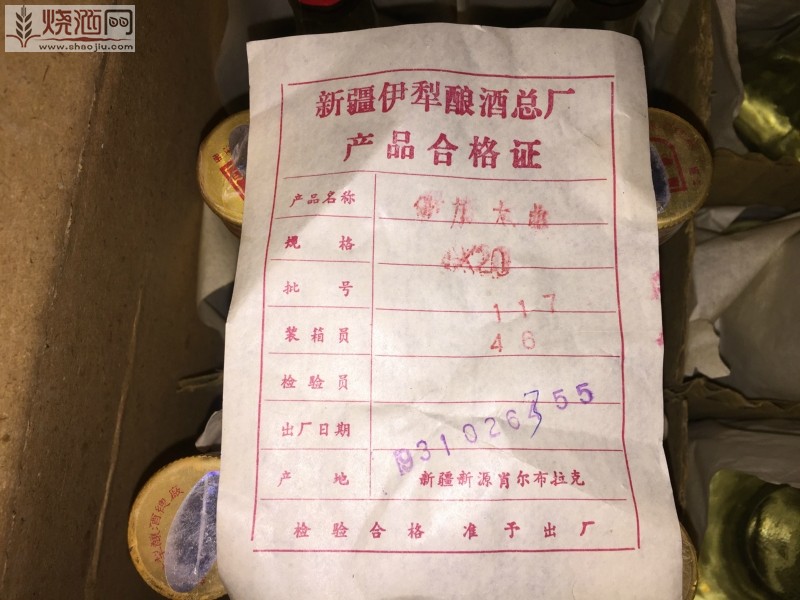 烧酒网
www.shaojiu.com
新疆伊犁酿酒总厂
产品合格证
产品名称 大曲
规格 ×20
批号 117
装箱员 46
检验员
出厂日期 931026 55
产地 新疆新源肖尔布拉克
检验合格 准予出厂